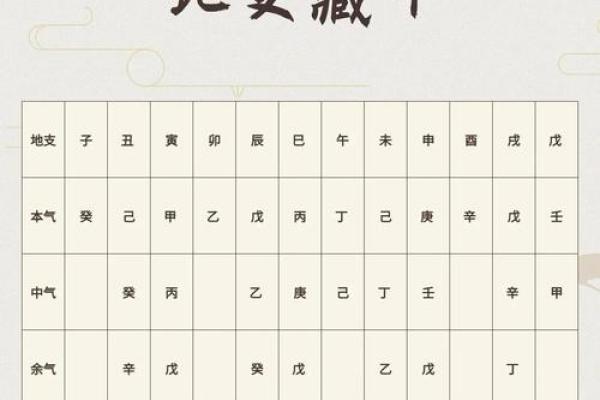 地支藏干
地支 子 丑 寅 卯 辰 巳 午 未 申 酉 戌 戊
本气 癸 己 甲 乙 戊 丙 丁 己 庚 辛 戊 壬
中气 癸 丙 乙 庚 己 丁 壬 辛 甲
余气 辛 戊 癸 戊 乙 戊 丁